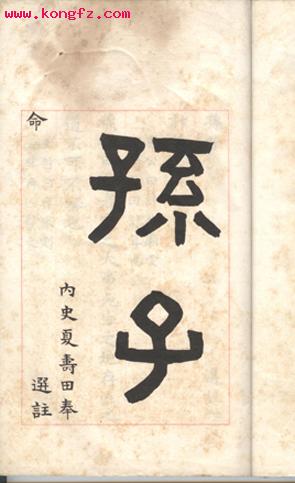 www.kongfz.com
孫子
內史夏壽田奉
命選註